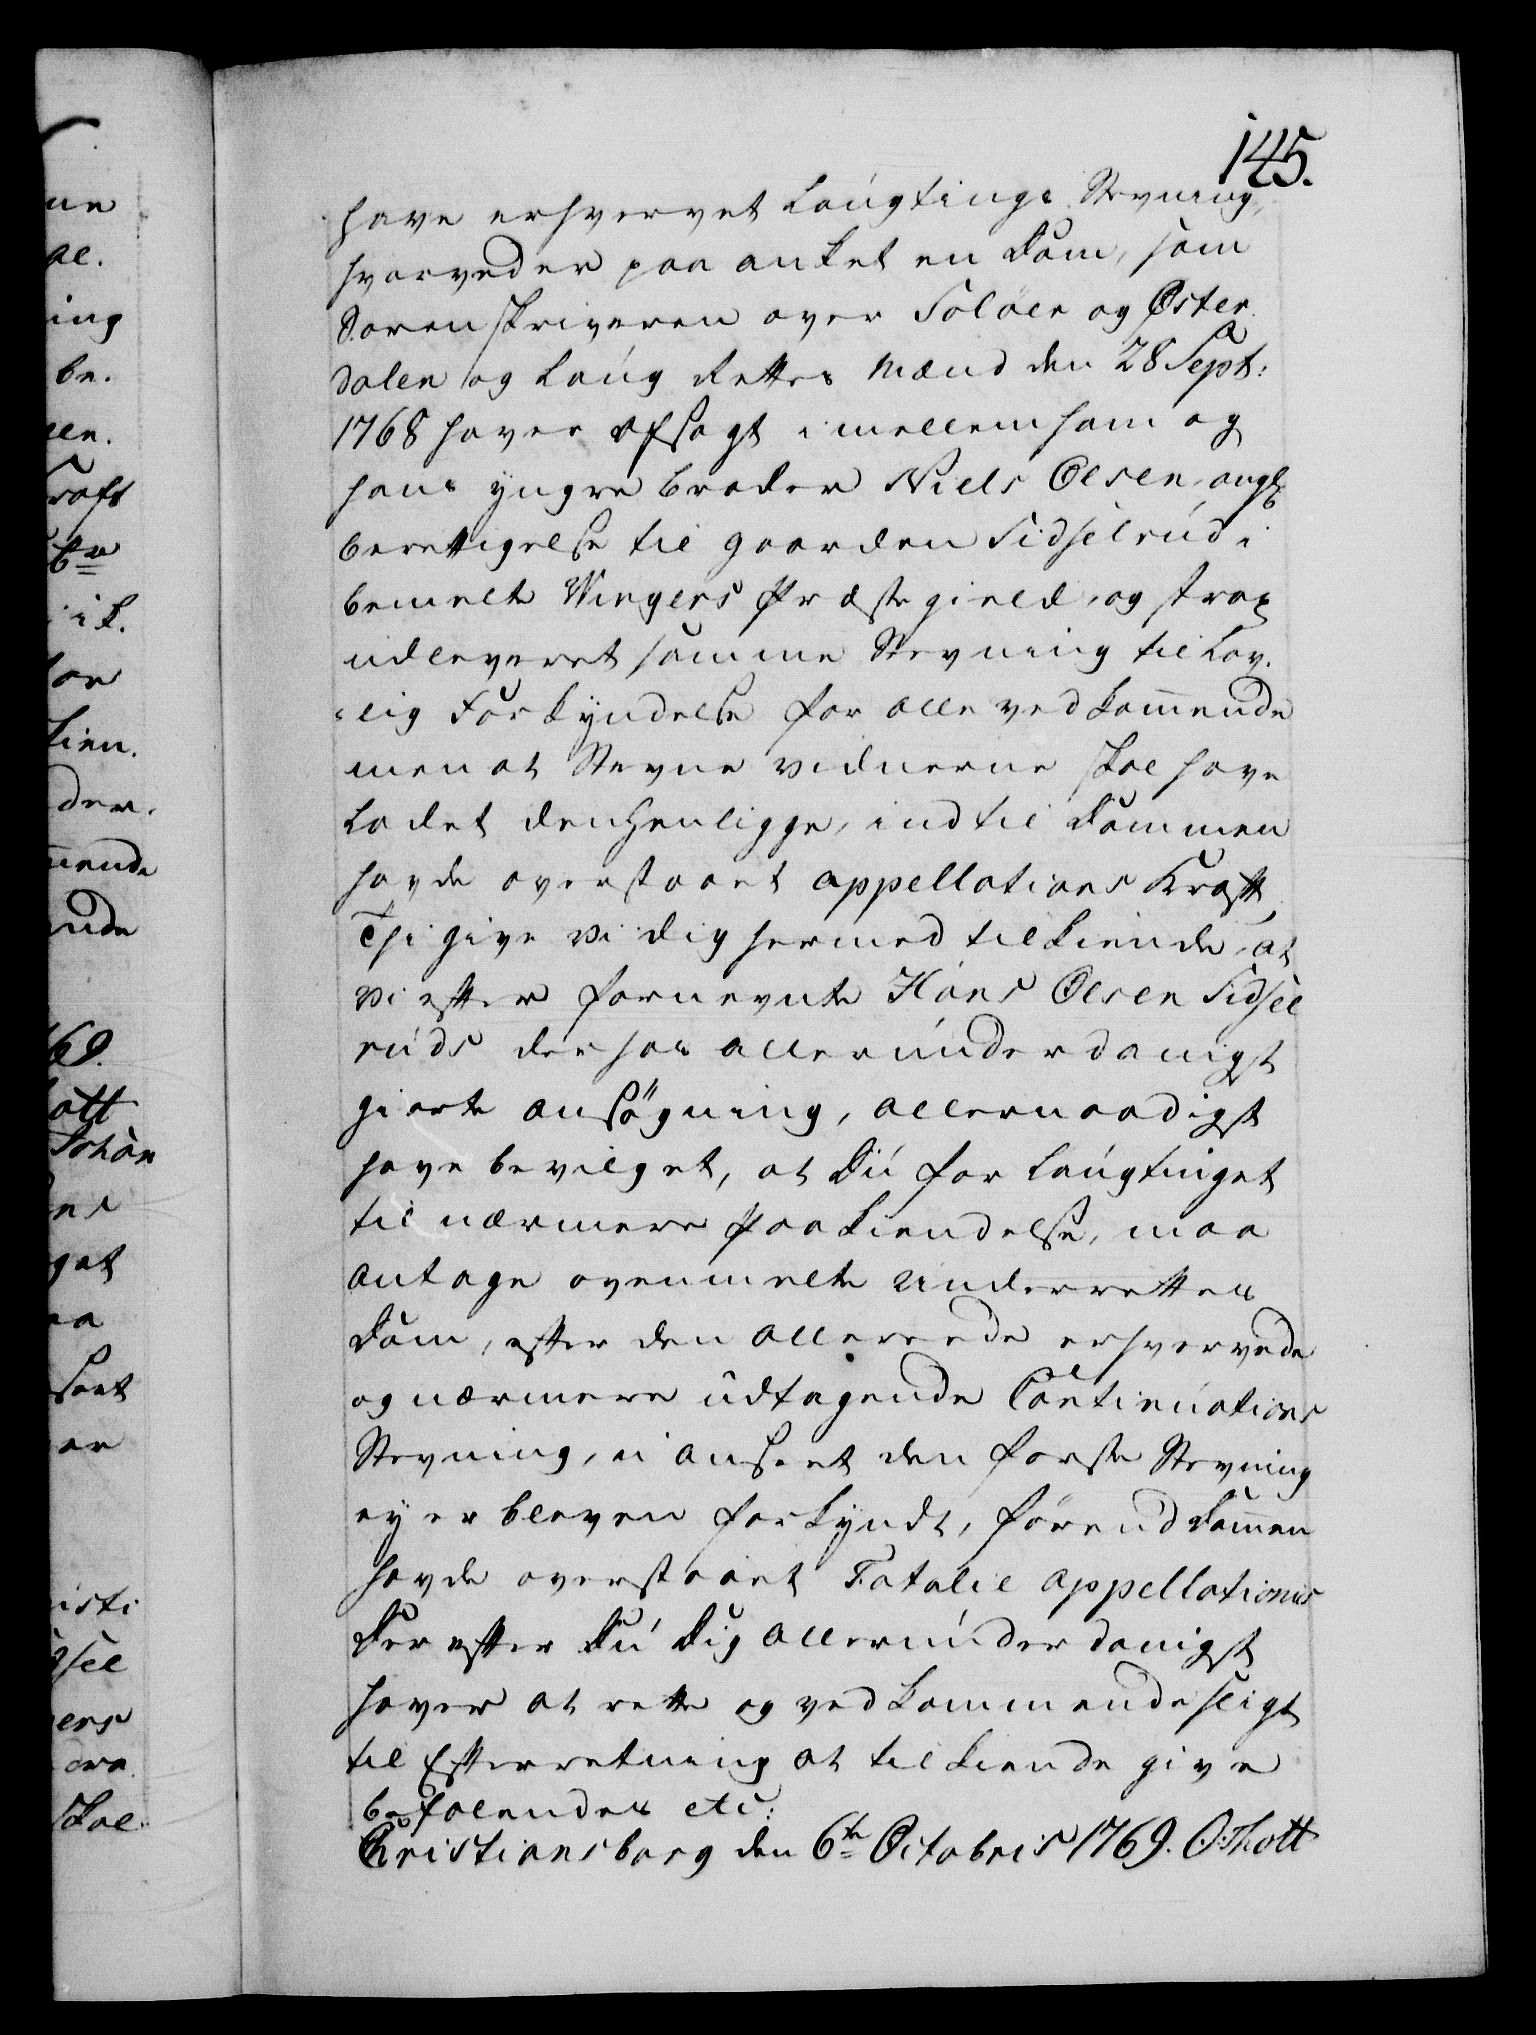 145.
have erhvervet Laugtings Stevning,
hvorved er paa anket en Dom, som
Sorenskriveren over Soløer og Øster
dalen og Laug Rettes Mænd den 28 Sept:
1768 haver afsagt imellem ham og
hans yngre Broder Niels Olsen, angl.
berettigelse til gaarden Sidselrud i
bemelte Wingers Præstegield, og strax
udleveret samme Stevning til Lov-
lig Forkyndelse for alle vedkom̅ende
men at Stevne vidnerne skal have
Ladet den henligge, indtil Dommen
havde overstaaet appellations Kraft,
Thi give vi dig hermed tilkiende, at
vi efter fornevnte Hans Olsen Sidsel
ruds derhos allerunderdanigst
giorte ansøgning, allernaadigst
have bevilget, at Du for Laugtinget
til nærmere Paakiendelse, maa
antage ovenmelte Underrettes
Dom, efter den allereede erhvervede
og nærmere udtagende Continuations
Stevning, u anseet den første Stevning
ey er bleven forkyndt, førend Dom̅en
havde overstaaet Fatalie appellationis
Derefter Du Dig allerunderdanigst
haver at rette og vedkommende sligt
til Efterretning at tilkiende give
befalendes etc:
Christiansborg den 6te Octobris 1769. O: Thott
ne
al.
ing
be.
len.
raft
6te
ik.
kien.
der.
mende
ende
69.
ott
Johan
get
seet
isti
sel
ers
skal